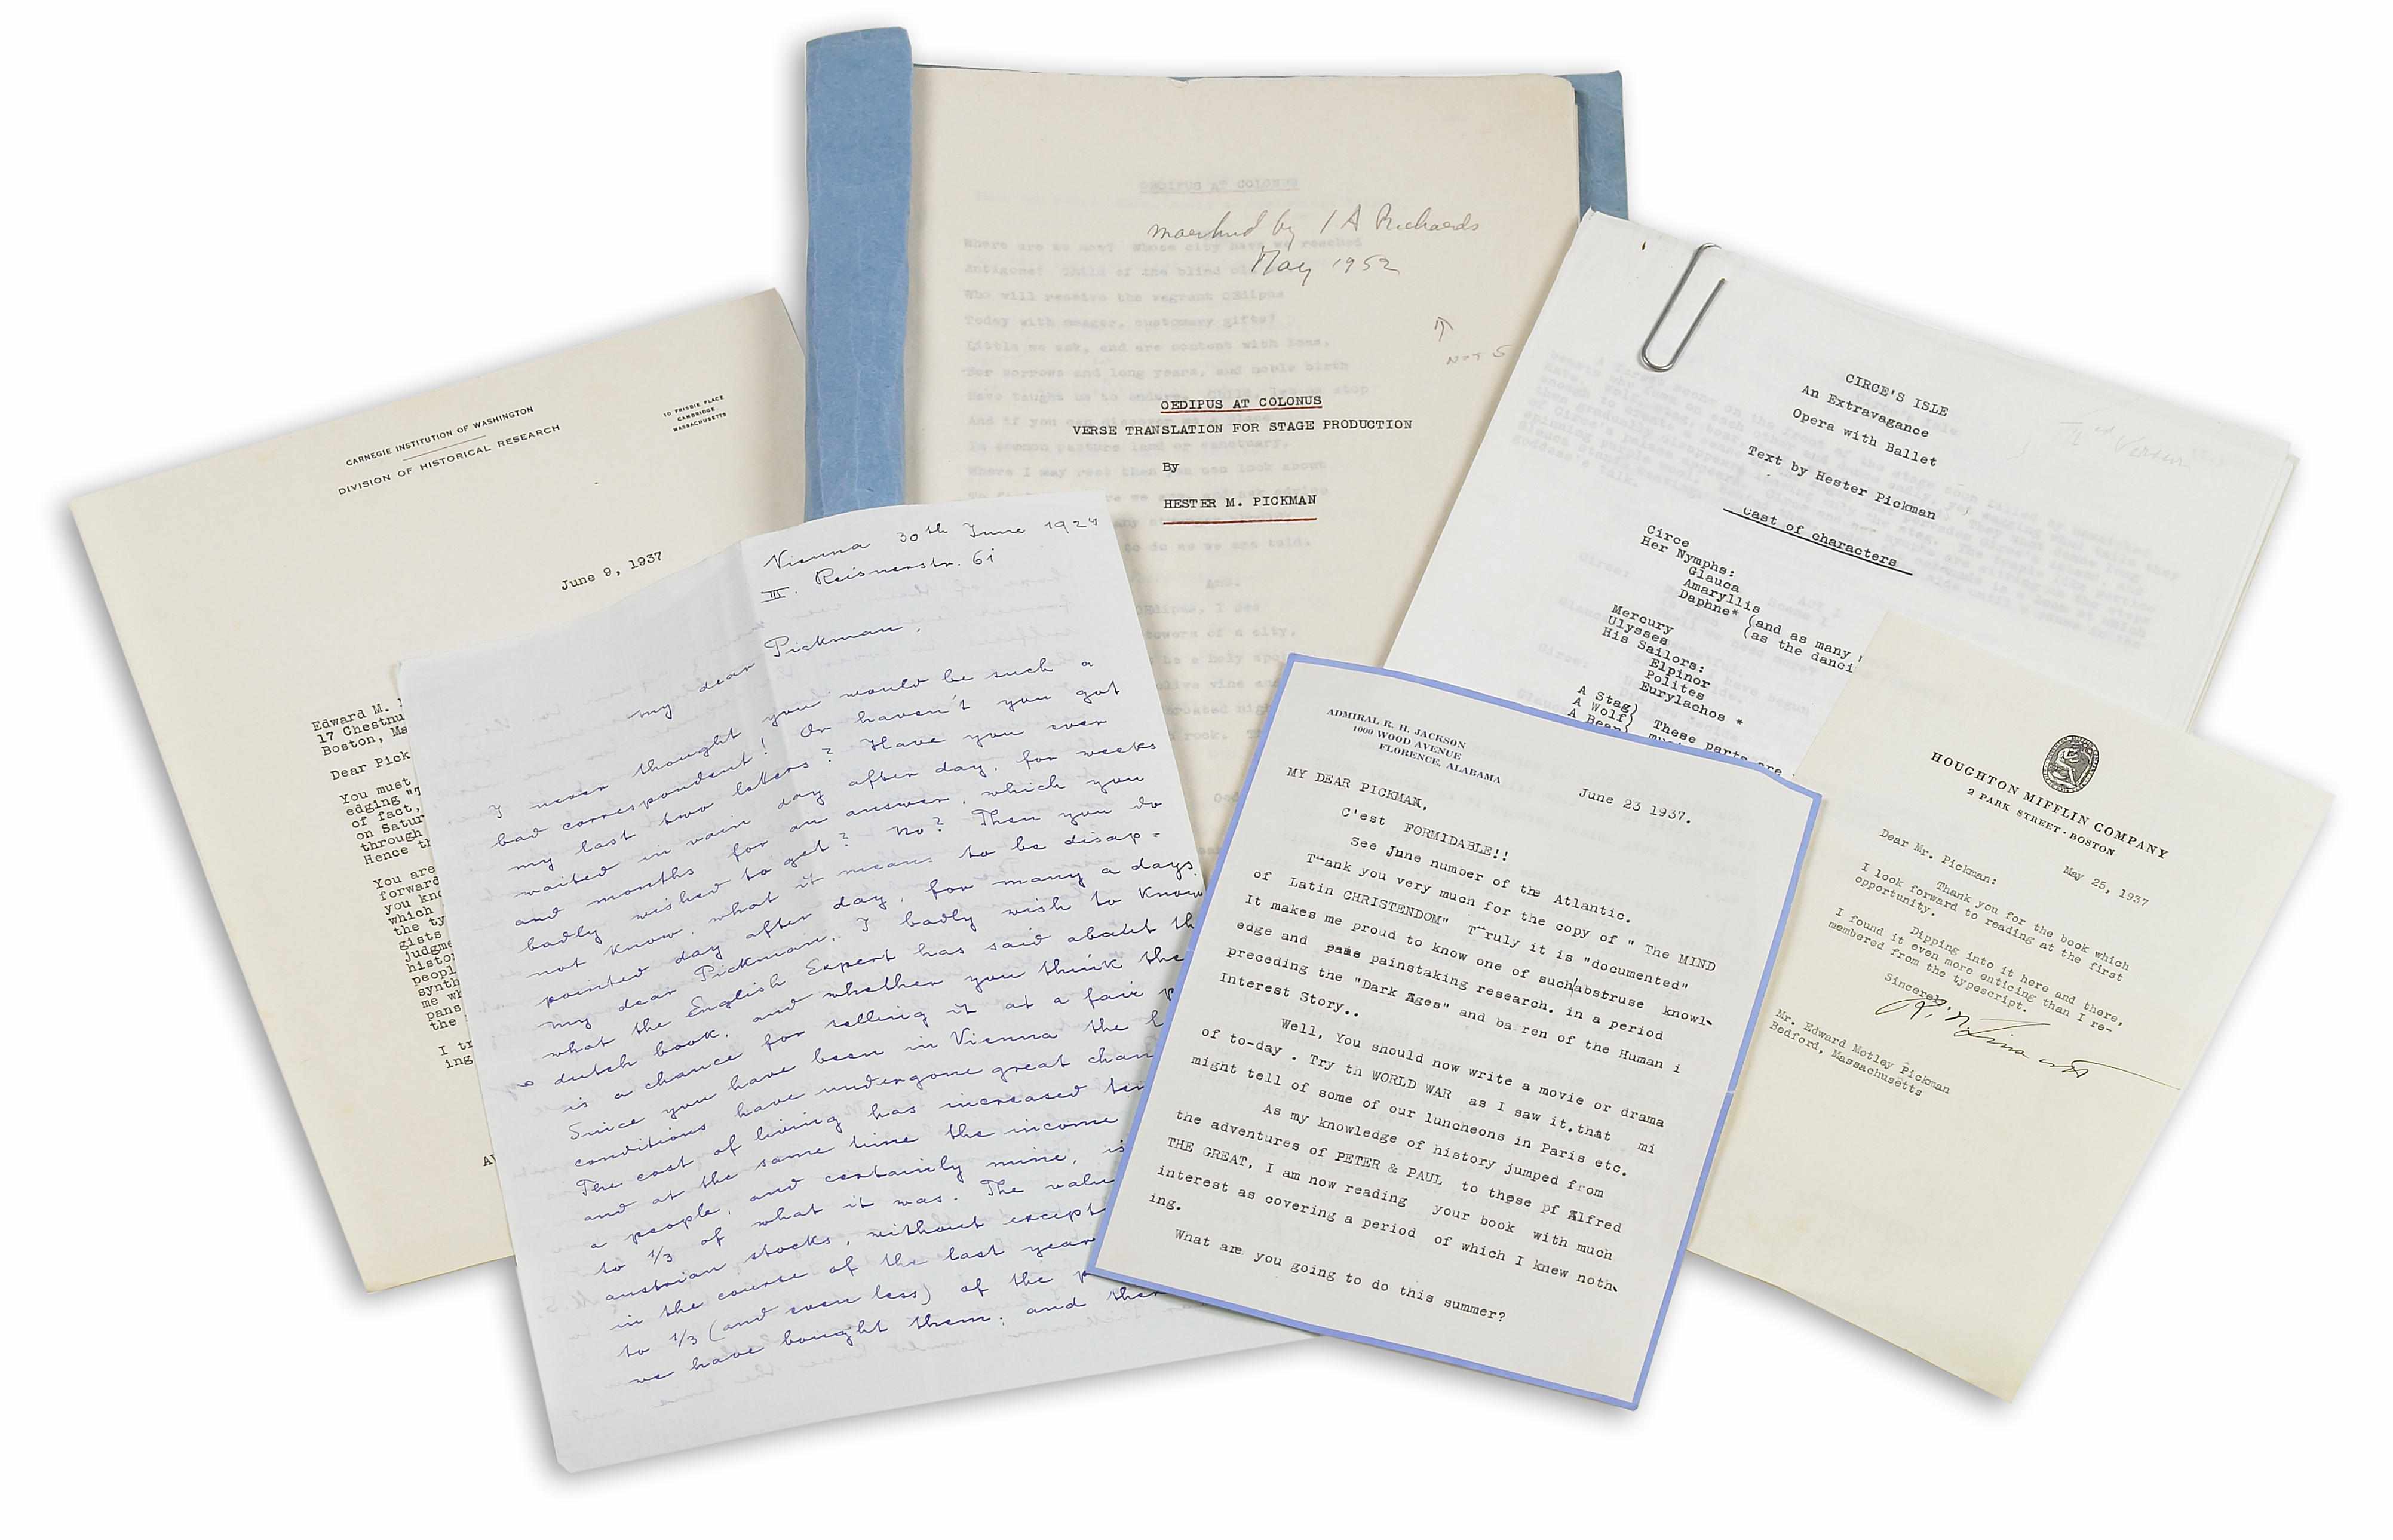 CARNEGIE INSTITUTION OF WASHINGTON
DIVISION OF HISTORICAL RESEARCH
10 FRISBIE PLACE
CAMBRIDGE
MASSACHUSETTS
June 9, 1937
Edward M.
17 Chestnu
Boston, Ma
Dear Pick
You must
edging "T
of fact,
on Satur
through
Hence th
You are
forward
you kno
which
the ty
gists
judgme
histo
peopl
synth
me wh
pans
the
I tr
ing
Vienna 30th June 1924
III. Reisnerstr. 61
my dear Pickman,
I never thought you would be such a
bad correspondent! Or haven't you got
my last two letters? Have you ever
waited in vain day after day, for weeks
and months for an answer, which you
badly wished to get? No? Then you do
not know, what it means to be disap=
pointed day after day, for many a days.
my dear Pickman, I badly wish to know
what the English Expert has said about th
dutch book, and whether you think the
is a chance for selling it at a fair p
Since you have been in Vienna the l
conditions have undergone great chan
The cost of living has increased ten
and at the same time the income
a people, and certainly mine, is
to 1/3 of what it was. The valu
austrian stocks, without except
in the course of the last year
to 1/3 (and even less) of the p
we have bought them; and then
OEDIPUS AT COLONUS
marked by I A Richards
May 1952
Where are we now? Whose city have we reached
Antigone? Child of the blind
Who will receive the vagrant OEdipus
Today with meager, customary gifts?
Little we ask, and are content with less,
For sorrows and long years, and noble birth
Have taught us to endure.
NOT S
OEDIPUS AT COLONUS
VERSE TRANSLATION FOR STAGE PRODUCTION
By
HESTER M. PICKMAN
CIRCE'S ISLE
An Extravagance
Opera with Ballet
Text by Hester Pickman
Cast of characters
Circe
Her Nymphs:
Glauca
Amaryllis
Daphne* (and as many
(as the danci
Mercury
Ulysses
His Sailors:
Elpinor
Polites
Eurylachos *
A Stag)
A Wolf) These parts are
A Bear) mus
ADMIRAL R. H. JACKSON
1000 WOOD AVENUE
FLORENCE, ALABAMA
June 23 1937.
MY DEAR PICKMAN,
C'est FORMIDABLE!!
See June number of the Atlantic.
Thank you very much for the copy of " The MIND
of Latin CHRISTENDOM" Truly it is "documented"
It makes me proud to know one of such abstruse knowl-
edge and paás painstaking research. in a period
preceding the "Dark Ages" and barren of the Human i
Interest Story..
Well, You should now write a movie or drama
of to-day . Try th WORLD WAR as I saw it.that mi
might tell of some of our luncheons in Paris etc.
As my knowledge of history jumped from
the adventures of PETER & PAUL to these pf Alfred
THE GREAT, I am now reading your book with much
interest as covering a period of which I knew noth-
ing.
What are you going to do this summer?
HOUGHTON MIFFLIN COMPANY
2 PARK STREET · BOSTON
May 25, 1937
Dear Mr. Pickman:
Thank you for the book which
I look forward to reading at the first
opportunity.
Dipping into it here and there,
I found it even more enticing than I re-
membered from the typescript.
Sincerely,
Mr. Edward Motley Pickman
Bedford, Massachusetts